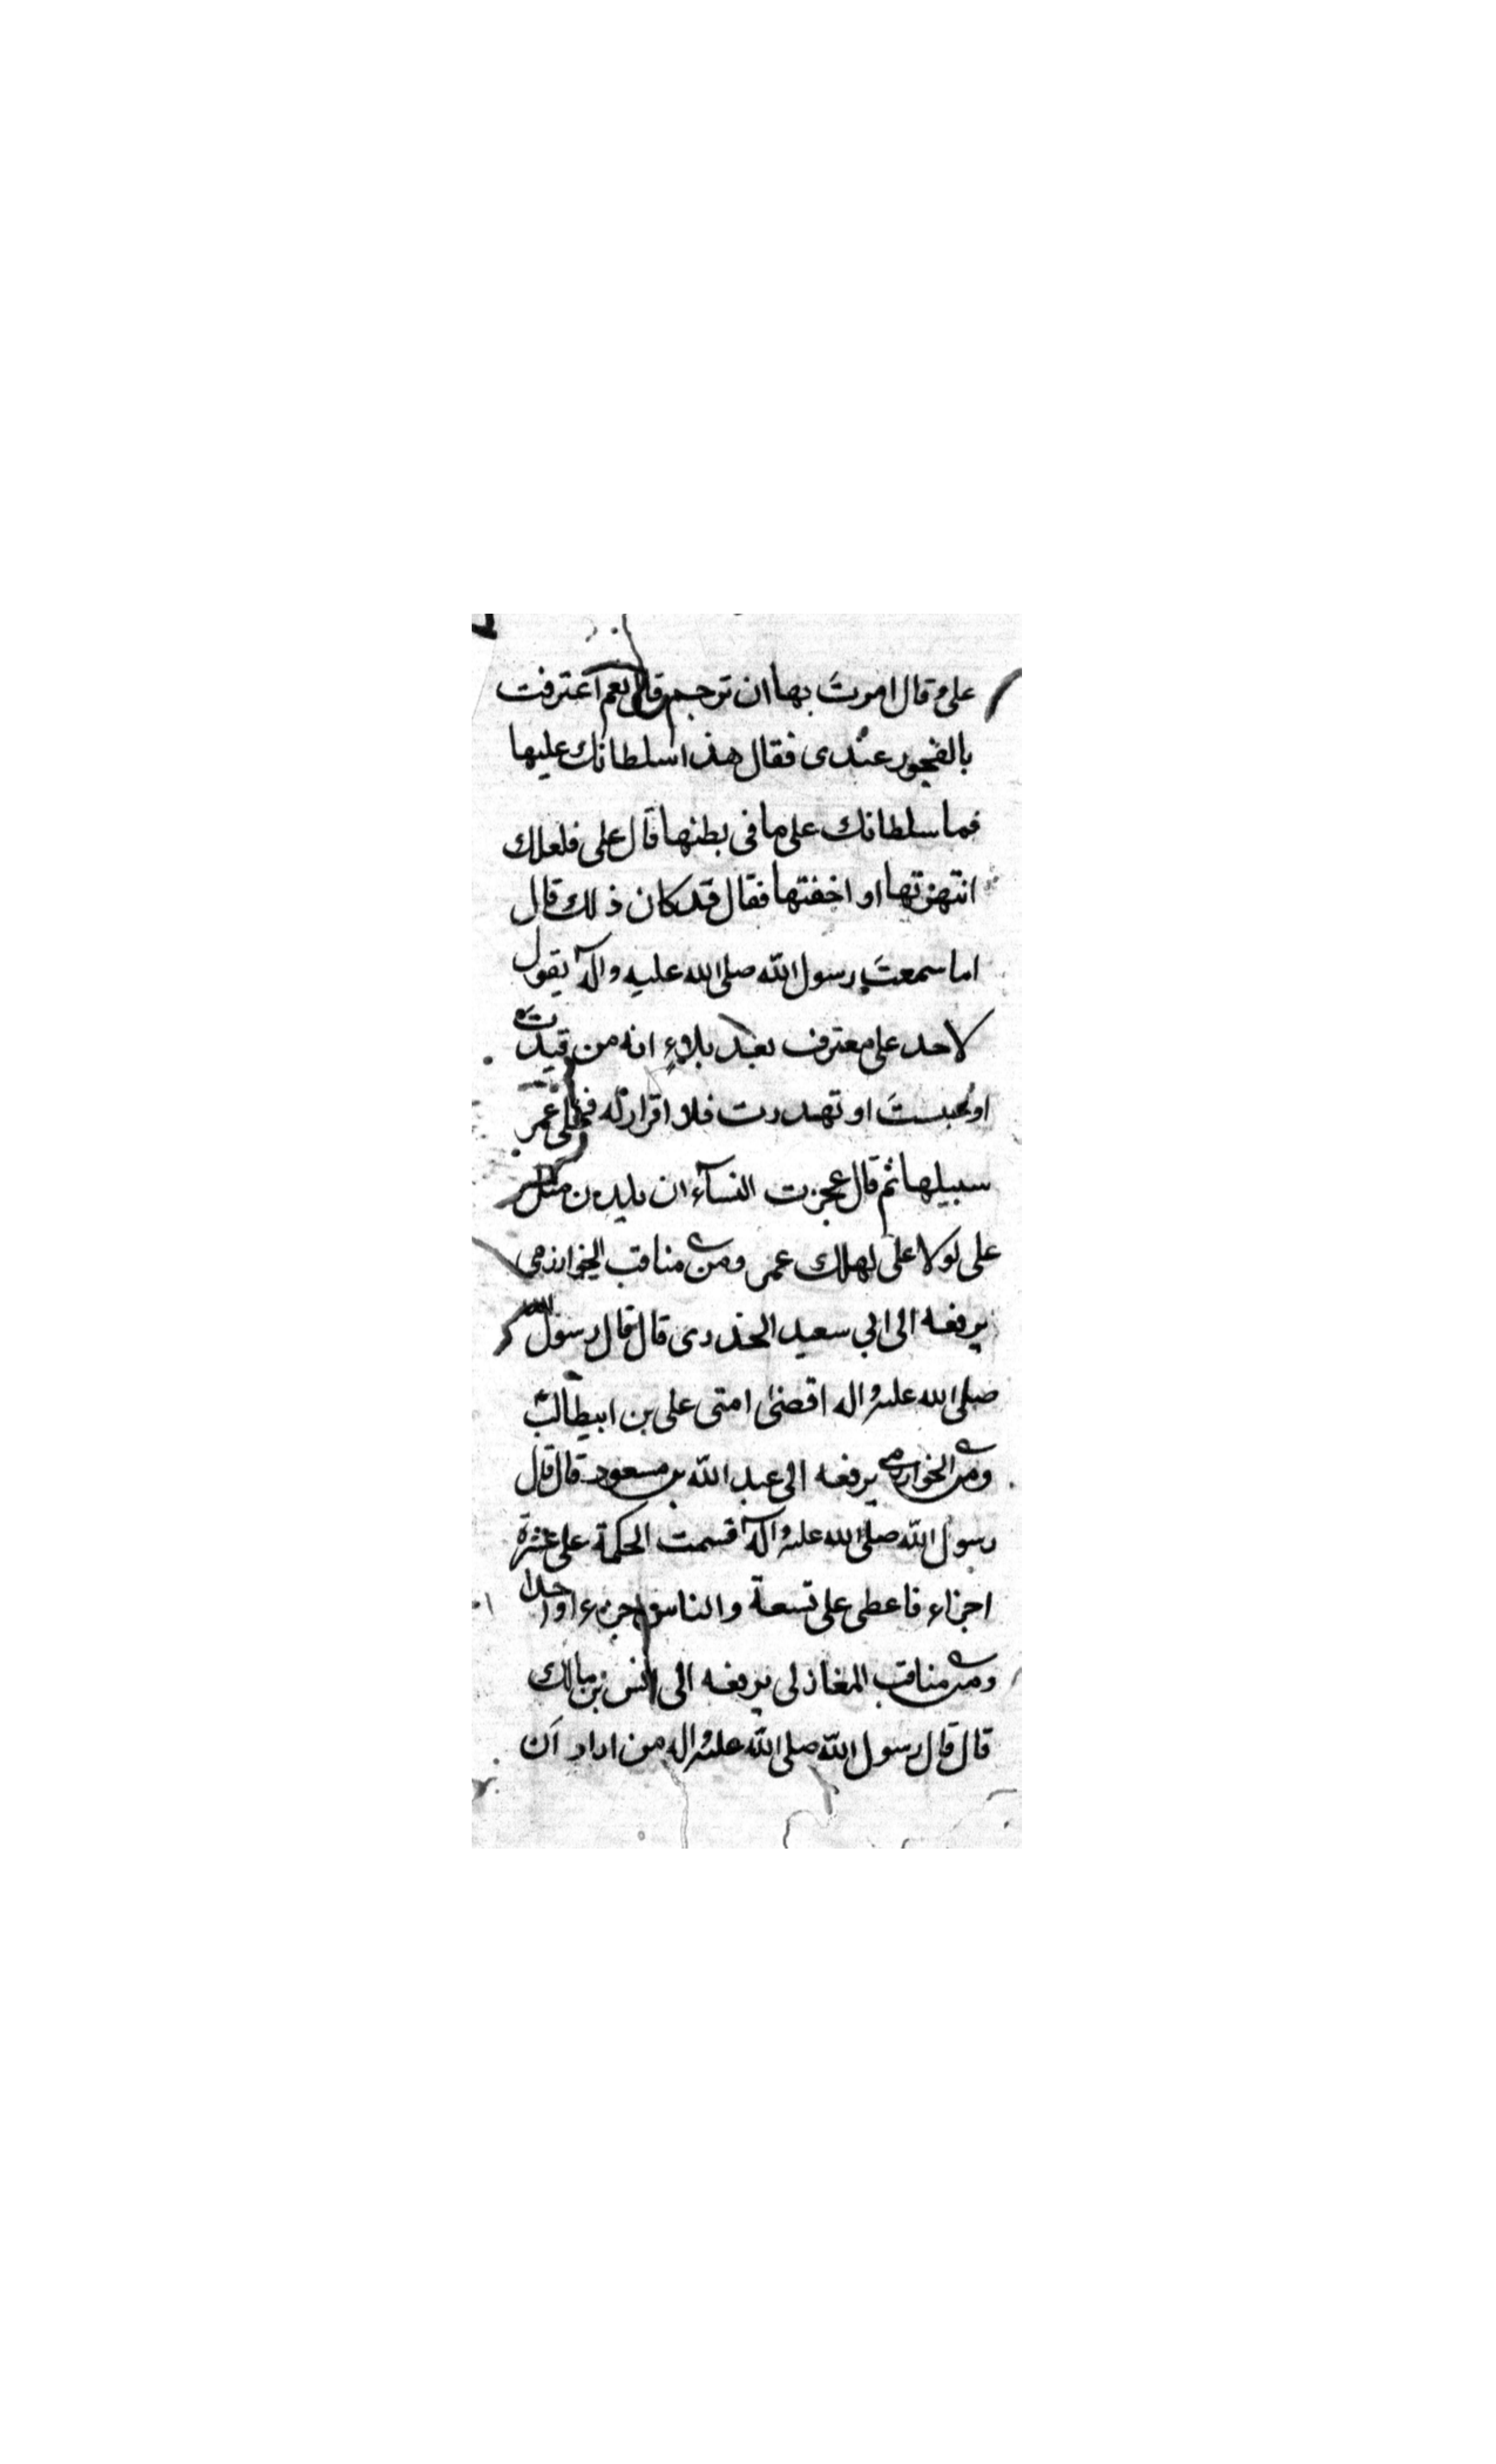 على وقال امرتَ بها ان ترجم قال نعم اعترفت
بالفجور عندى فقال هذا سلطانك عليها
فما سلطانك على ما فى بطنها قال على فلعلك
انتهرتها او اخفتها فقال قد كان ذلك قال
اما سمعتَ رسول الله صلى الله عليه وآله يقول
لا حد على معترف بعد بلاءٍ انه من قيدتَ
او حبستَ او تهددت فلا اقرار له فخلى عمر
سبيلها ثم قال عجزت النسآء ان يلدن مثل
على لولا على لهلك عمر ومن مناقب الخوارزمى
يرفعه الى ابي سعيد الخدرى قال قال رسول الله
صلى الله عليه واله اقضى امتى على بن ابيطالب
ومن الخوارزمي يرفعه الى عبد الله بن مسعود قال قال
رسول الله صلى الله عليه وآله قسمت الحكمة على عشرة
اجزاء فاعطى على تسعة والناس جزءا واحدا
ومن مناقب المغازلى يرفعه الى انس بن مالك
قال قال رسول الله صلى الله عليه واله من اراد ان